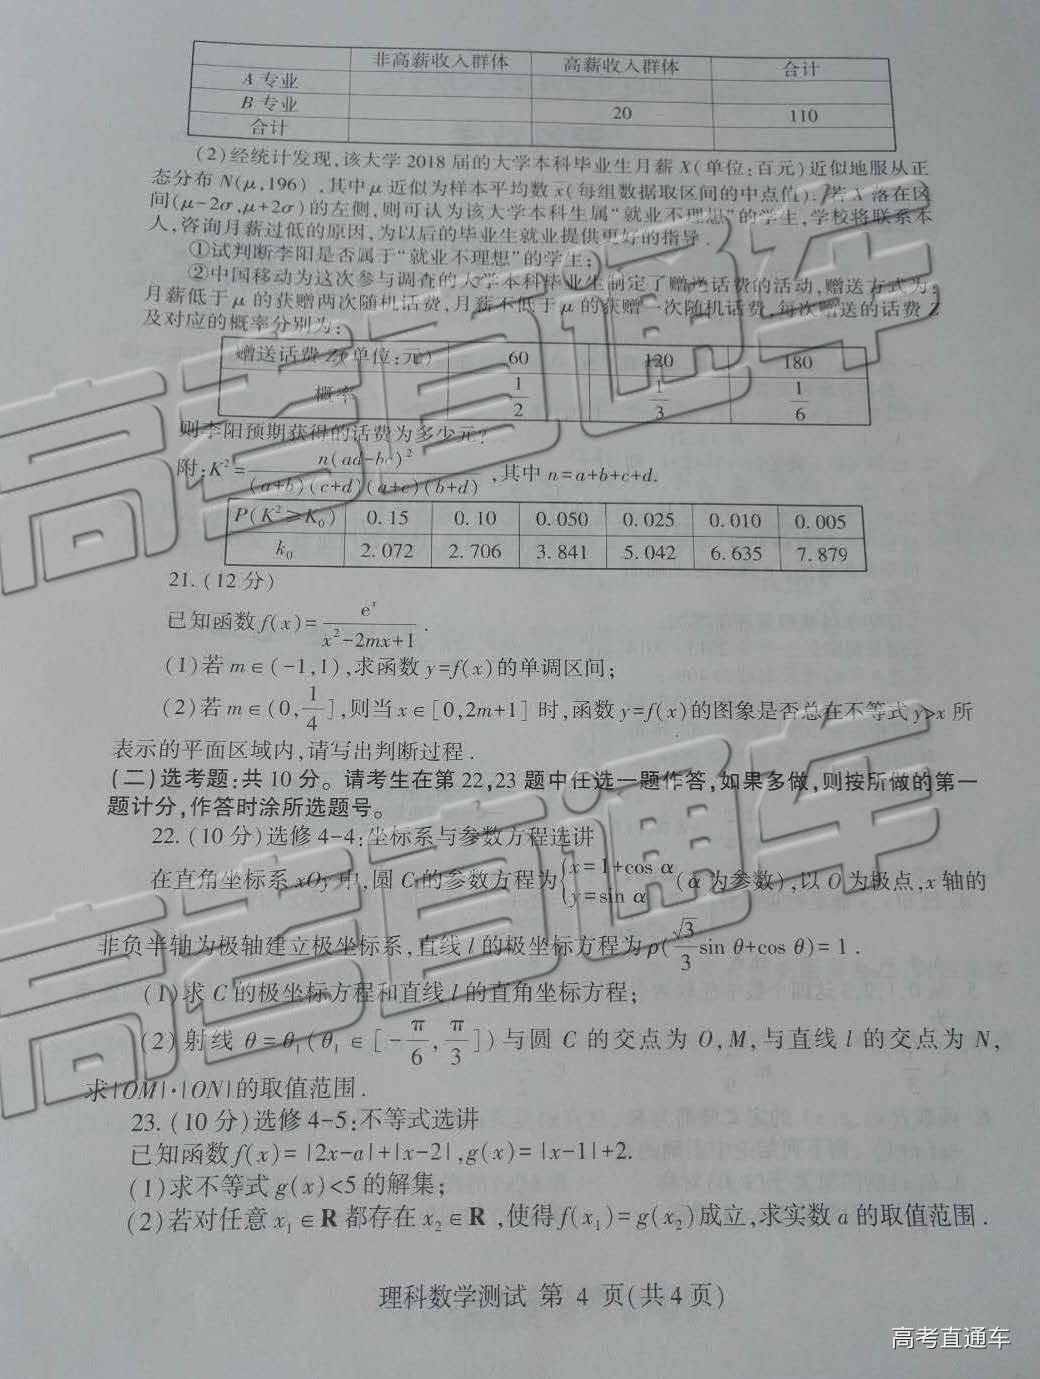 非高薪收入群体 高薪收入群体 合计
A 专业
B 专业 20 110
合计
(2)经统计发现,该大学 2018 届的大学本科毕业生月薪 X(单位:百元)近似地服从正
态分布 N(μ,196) ,其中 μ 近似为样本平均数 x̄(每组数据取区间的中点值).若 X 落在区
间(μ-2σ,μ+2σ)的左侧,则可认为该大学本科生属“就业不理想”的学生,学校将联系本
人,咨询月薪过低的原因,为以后的毕业生就业提供更好的指导.
①试判断李阳是否属于“就业不理想”的学生;
②中国移动为这次参与调查的大学本科毕业生制定了赠送话费的活动,赠送方式为:
月薪低于 μ 的获赠两次随机话费,月薪不低于 μ 的获赠一次随机话费,每次赠送的话费 Z
及对应的概率分别为:
赠送话费 Z(单位:元) 60 120 180
概率 1/2 1/3 1/6
则李阳预期获得的话费为多少元?
附:K²=n(ad-bc)²/(a+b)(c+d)(a+c)(b+d) ,其中 n=a+b+c+d.
P(K²≥K₀) 0.15 0.10 0.050 0.025 0.010 0.005
k₀ 2.072 2.706 3.841 5.042 6.635 7.879
21.(12 分)
已知函数 f(x)=eˣ/x²-2mx+1.
(1)若 m∈(-1,1),求函数 y=f(x)的单调区间;
(2)若 m∈(0,1/4],则当 x∈[0,2m+1] 时,函数 y=f(x)的图象是否总在不等式 y>x 所
表示的平面区域内,请写出判断过程.
(二)选考题:共 10 分。请考生在第 22,23 题中任选一题作答,如果多做,则按所做的第一
题计分,作答时涂所选题号。
22.(10 分)选修 4-4:坐标系与参数方程选讲
在直角坐标系 xOy 中,圆 C 的参数方程为{x=1+cos α y=sin α(α 为参数),以 O 为极点,x 轴的
非负半轴为极轴建立极坐标系,直线 l 的极坐标方程为 ρ(√3/3 sin θ+cos θ)=1.
(1)求 C 的极坐标方程和直线 l 的直角坐标方程;
(2)射线 θ=θ₁(θ₁∈[-π/6,π/3])与圆 C 的交点为 O,M,与直线 l 的交点为 N,
求|OM|·|ON|的取值范围.
23.(10 分)选修 4-5:不等式选讲
已知函数 f(x)=|2x-a|+|x-2|,g(x)=|x-1|+2.
(1)求不等式 g(x)<5 的解集;
(2)若对任意 x₁∈R 都存在 x₂∈R ,使得 f(x₁)=g(x₂)成立,求实数 a 的取值范围.
理科数学测试 第 4 页(共 4 页)
高考直通车
高考直通车
高考直通车